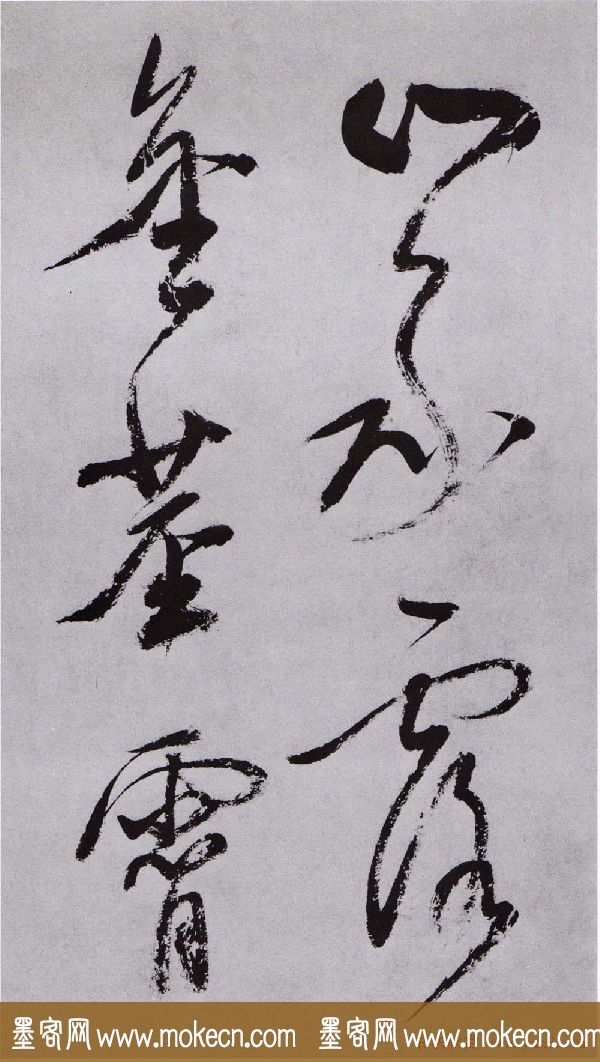 山承露
金茎霄
墨客网 www.mokecn.com 墨客网 www.mokecn.com